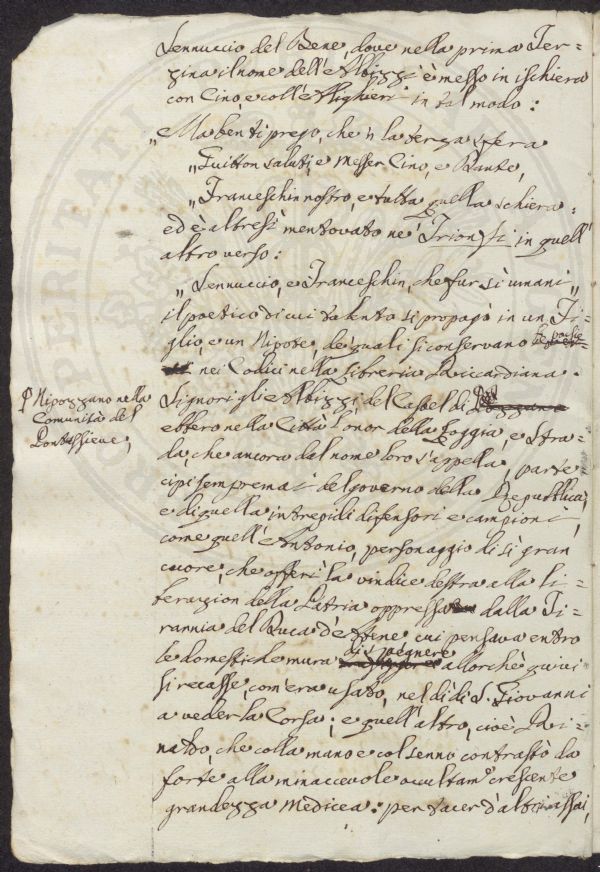 Sennuccio del Bene, dove nella prima Ter-
zina il nome dell'Albizzi è messo in ischiera
con Cino, e coll'Alighieri in tal modo:
„ Ma ben ti prego, che 'n la terza sfera
„ Guitton saluti, e messer Cino, e Dante,
„ Franceschin nostro, e tutta quella schiera.
ed è altresì mentovato ne' Trionfi in quell'
altro verso:
„ Sennuccio, e Franceschin, che fur sì umani „
il poetico di cui talento si propagò in un Fi-
glio, e un Nipote, de' quali si conservano le poesie
nei Codici nella Libreria Riccardiana.
Signori gli Albizzi del Castel di
Nipozzano nella
Comunità del
Pontassieve,
ebbero nella Città l'onor della Loggia, e Stra-
da, che ancora dal nome loro s'appella, parte
cipi sempremai del governo della Repubblica,
e di quella intrepidi difensori e campioni,
come quell'Antonio, personaggio di sì gran
cuore, che offerì la vindice destra alla li-
berazion della Patria oppressa dalla Ti-
rannia del Duca d'Atene cui pensava entro
le domestiche mura di spegnere allorchè quivi
si recasse, com'era usato, nel dì di S. Giovanni
a veder la Corsa; e quell'altro, cioè Ri-
naldo, che colla mano e col senno contrastò da
forte alla minaccevole occultam.e crescente
grandezza Medicea: per tacer d'altri assai,